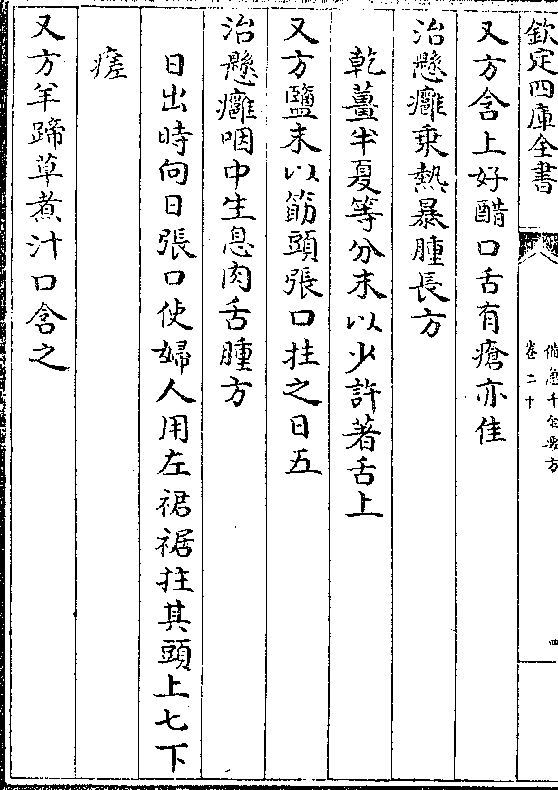 欽定四庫全書
備急千金要方
卷二十
四
又方含上好醋口舌有瘡亦佳
治懸癰乗熱暴腫長方
乾薑半夏等分末以少許著舌上
又方鹽末以筯頭張口拄之日五
治懸癰咽中生息肉舌腫方
日出時向日張口使婦人用左裙裾拄其頭上七下
瘥
又方羊蹄草煮汁口含之